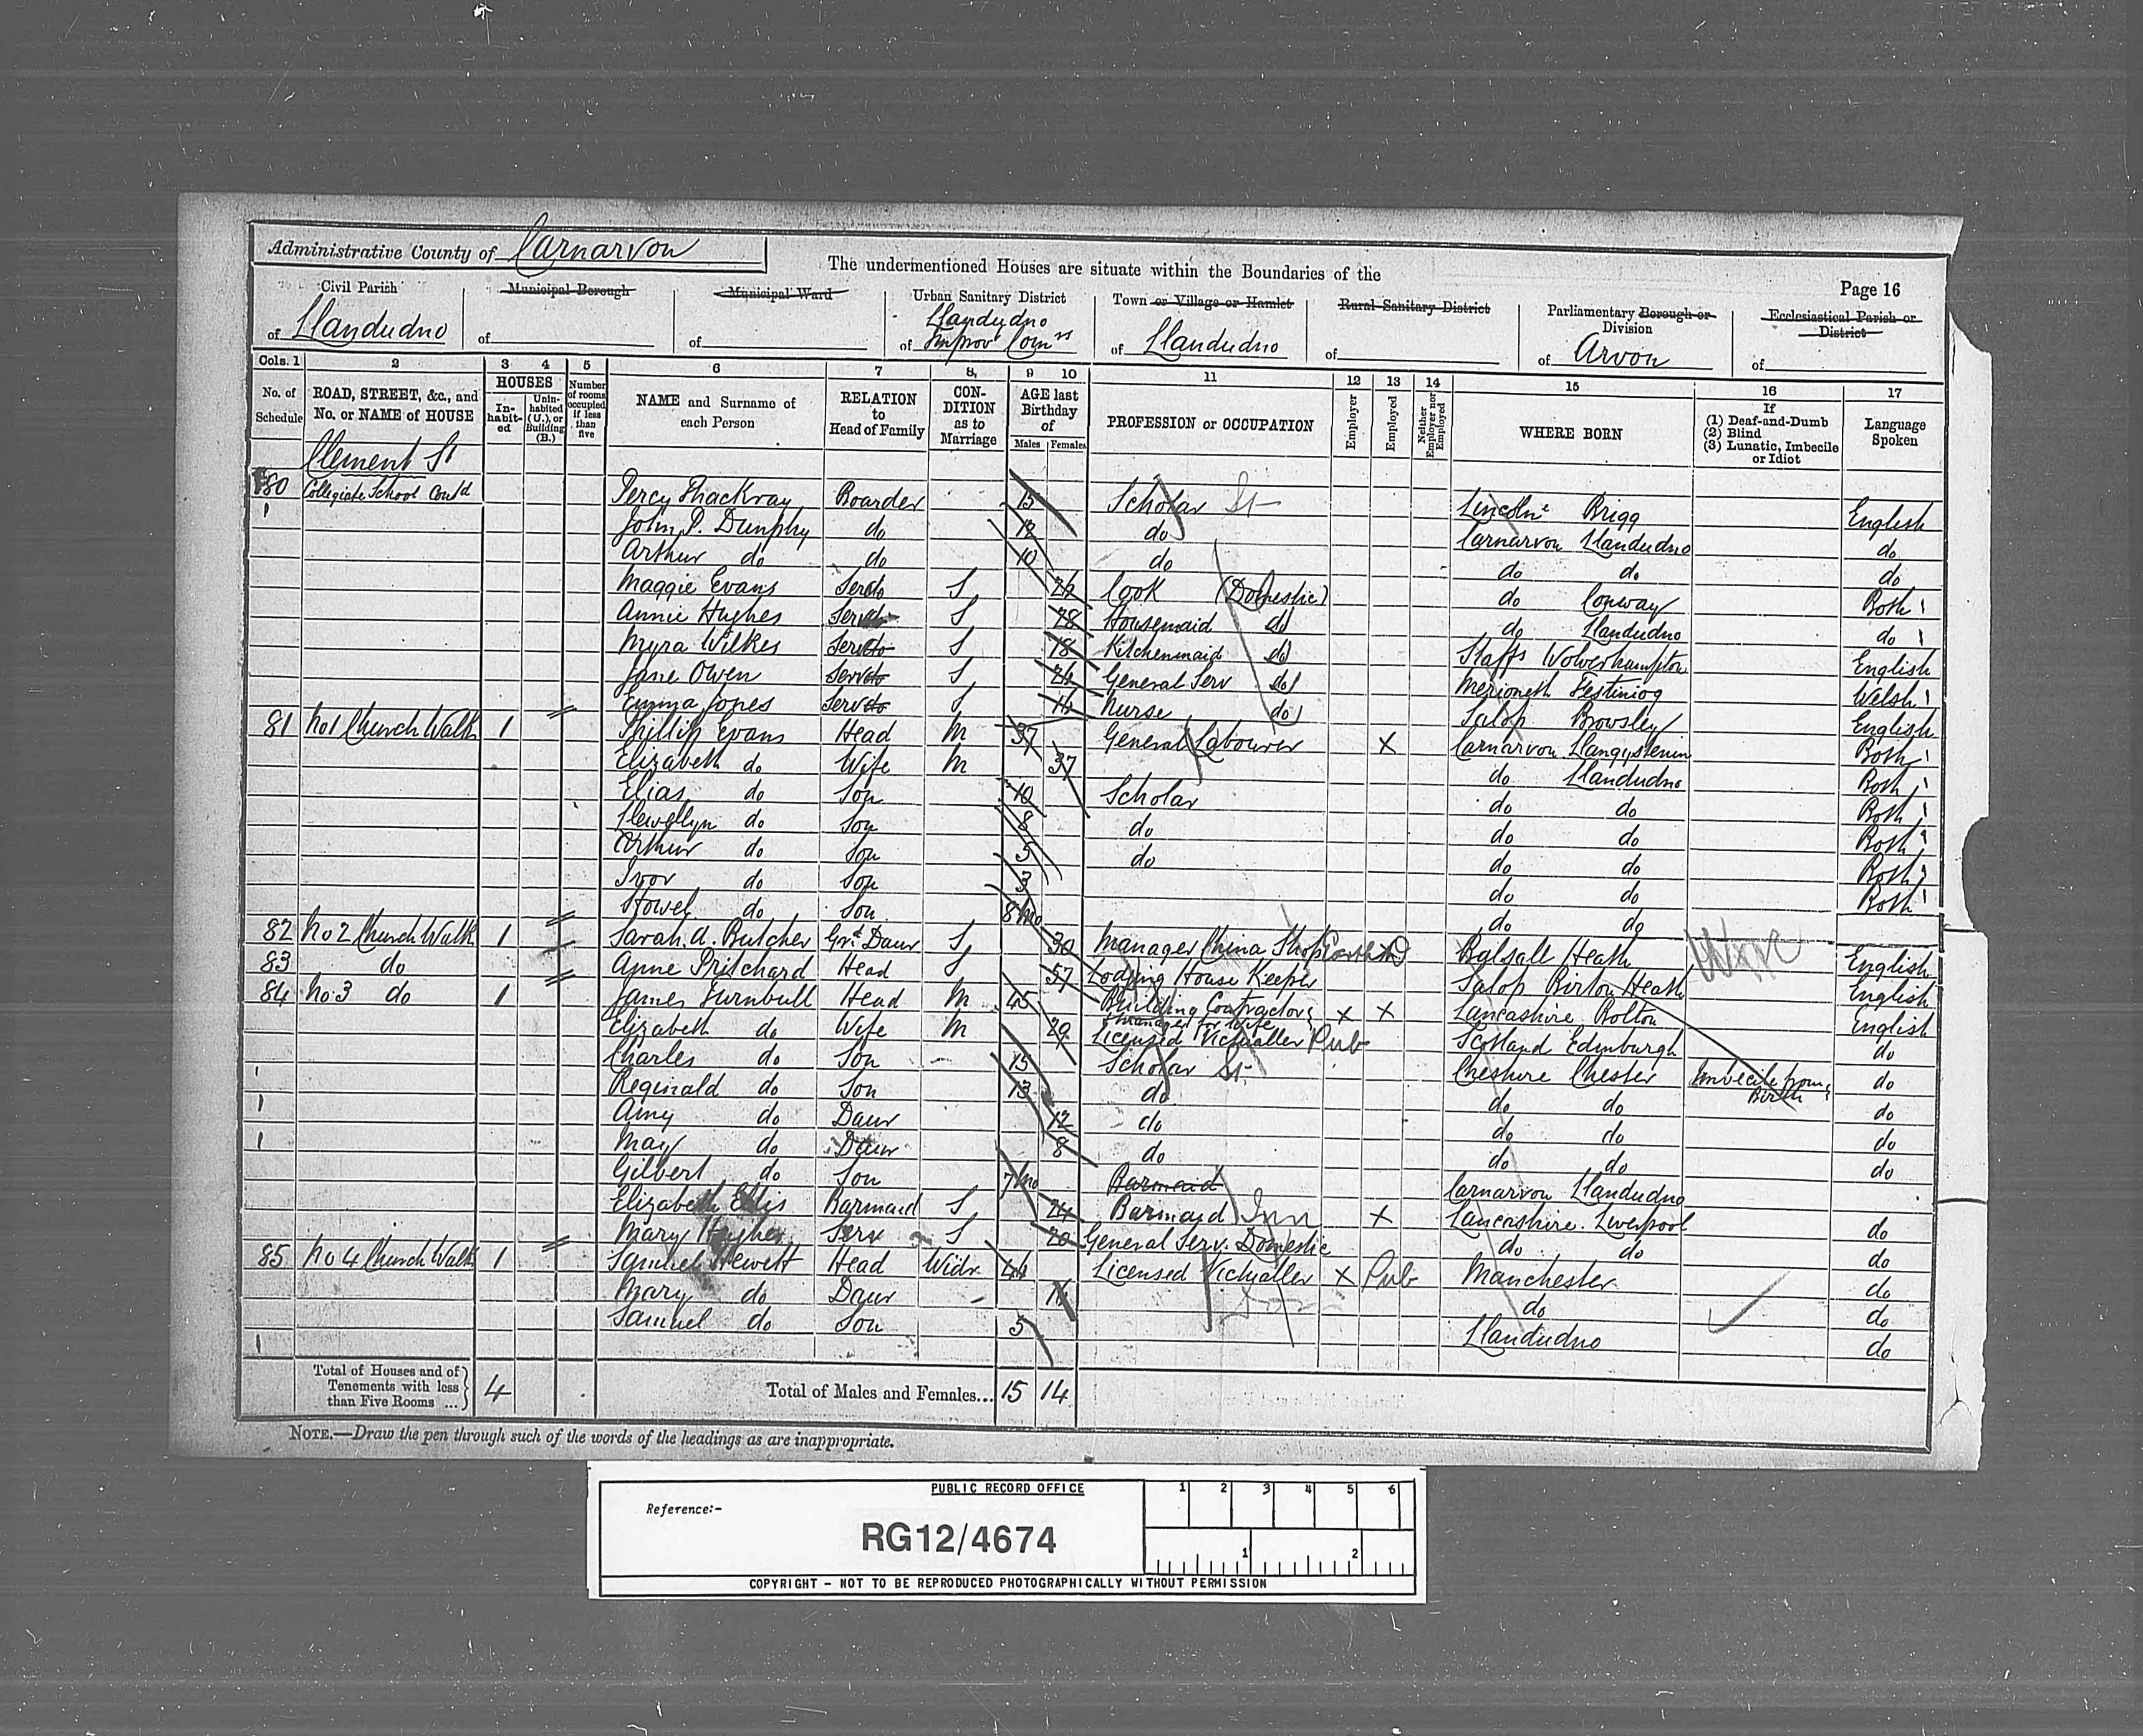 Administrative County of Carnarvon
The undermentioned Houses are situate within the Boundaries of the
Page 16
Civil Parish of Llandudno
Municipal Borough of
Municipal Ward of
Urban Sanitary District of Llandudno Improv Comrs
Town or Village or Hamlet of Llandudno
Rural Sanitary District of
Parliamentary Borough or Division of Arvon
Ecclesiastical Parish or District of
Cols. 1 2 3 4 5 6 7 8 9 10 11 12 13 14 15 16 17
No. of Schedule
ROAD, STREET, &c., and No. or NAME of HOUSE
HOUSES
Inhabited
Uninhabited (U.), or Building (B.)
Number of rooms occupied if less than five
NAME and Surname of each Person
RELATION to Head of Family
CONDITION as to Marriage
AGE last Birthday of
Males Females
PROFESSION or OCCUPATION
Employer
Employed
Neither Employer nor Employed
WHERE BORN
If (1) Deaf-and-Dumb (2) Blind (3) Lunatic, Imbecile or Idiot
Language Spoken
Clement St
80 Collegiate School Contd Percy Thackray Boarder 15 Scholar St Lincolne Brigg English
John P. Dunphy do 12 do Carnarvon Llandudno do
Arthur do do 10 do do do do
Maggie Evans Serv S Cook (Domestic) do Conway Both
Annie Hughes Serv S 28 Housemaid do do Llandudno do
Myra Wilkes Serv do S 18 Kitchenmaid do Staffs Wolverhampton English
Jane Owen Serv do S General Serv do Merioneth Festiniog Welsh
Emma Jones Serv do S 16 Nurse do Salop Browsley English
81 No 1 Church Walk 1 Phillip Evans Head M 37 General Labourer X Carnarvon Llangystenin Both
Elizabeth do Wife M 37 do Llandudno Both
Elias do Son 10 Scholar do do Both
Llewellyn do Son 8 do do do Both
Arthur do Son 5 do do do Both
Ivor do Son 3 do do Both
Howel do Son 8 mo do do
82 No 2 Church Walk 1 Sarah A. Butcher Grt Daur S 30 Manager China Shop X Balsall Heath English
83 do Anne Pritchard Head S 57 Lodging House Keeper Salop Birton Heath English
84 No. 3 do 1 James Turnbull Head M 45 Building Contractor & manager for wife X X Lancashire Bolton English
Elizabeth do Wife M 29 Licensed Victualler Pub Scotland Edinburgh do
Charles do Son 15 Scholar St Cheshire Chester Imbecile from Birth do
Reginald do Son 13 do do do do
Amy do Daur 12 do do do do
May do Daur 8 do do do do
Gilbert do Son 7 mo Barmaid Carnarvon Llandudno
Elizabeth Ellis Barmaid S 24 Barmaid Inn X Lancashire Liverpool do
Mary Hughes Serv S 20 General Serv. Domestic do do do
85 No 4 Church Walk 1 Samuel Hewett Head Widr 44 Licensed Victualler X Pub Manchester do
Mary do Daur 16 do do
Samuel do Son 5 Llandudno do
Total of Houses and of Tenements with less than Five Rooms ... 4
Total of Males and Females... 15 14
NOTE.—Draw the pen through such of the words of the headings as are inappropriate.
PUBLIC RECORD OFFICE
1 2 3 4 5 6
Reference:-
RG12/4674
1 2
COPYRIGHT - NOT TO BE REPRODUCED PHOTOGRAPHICALLY WITHOUT PERMISSION